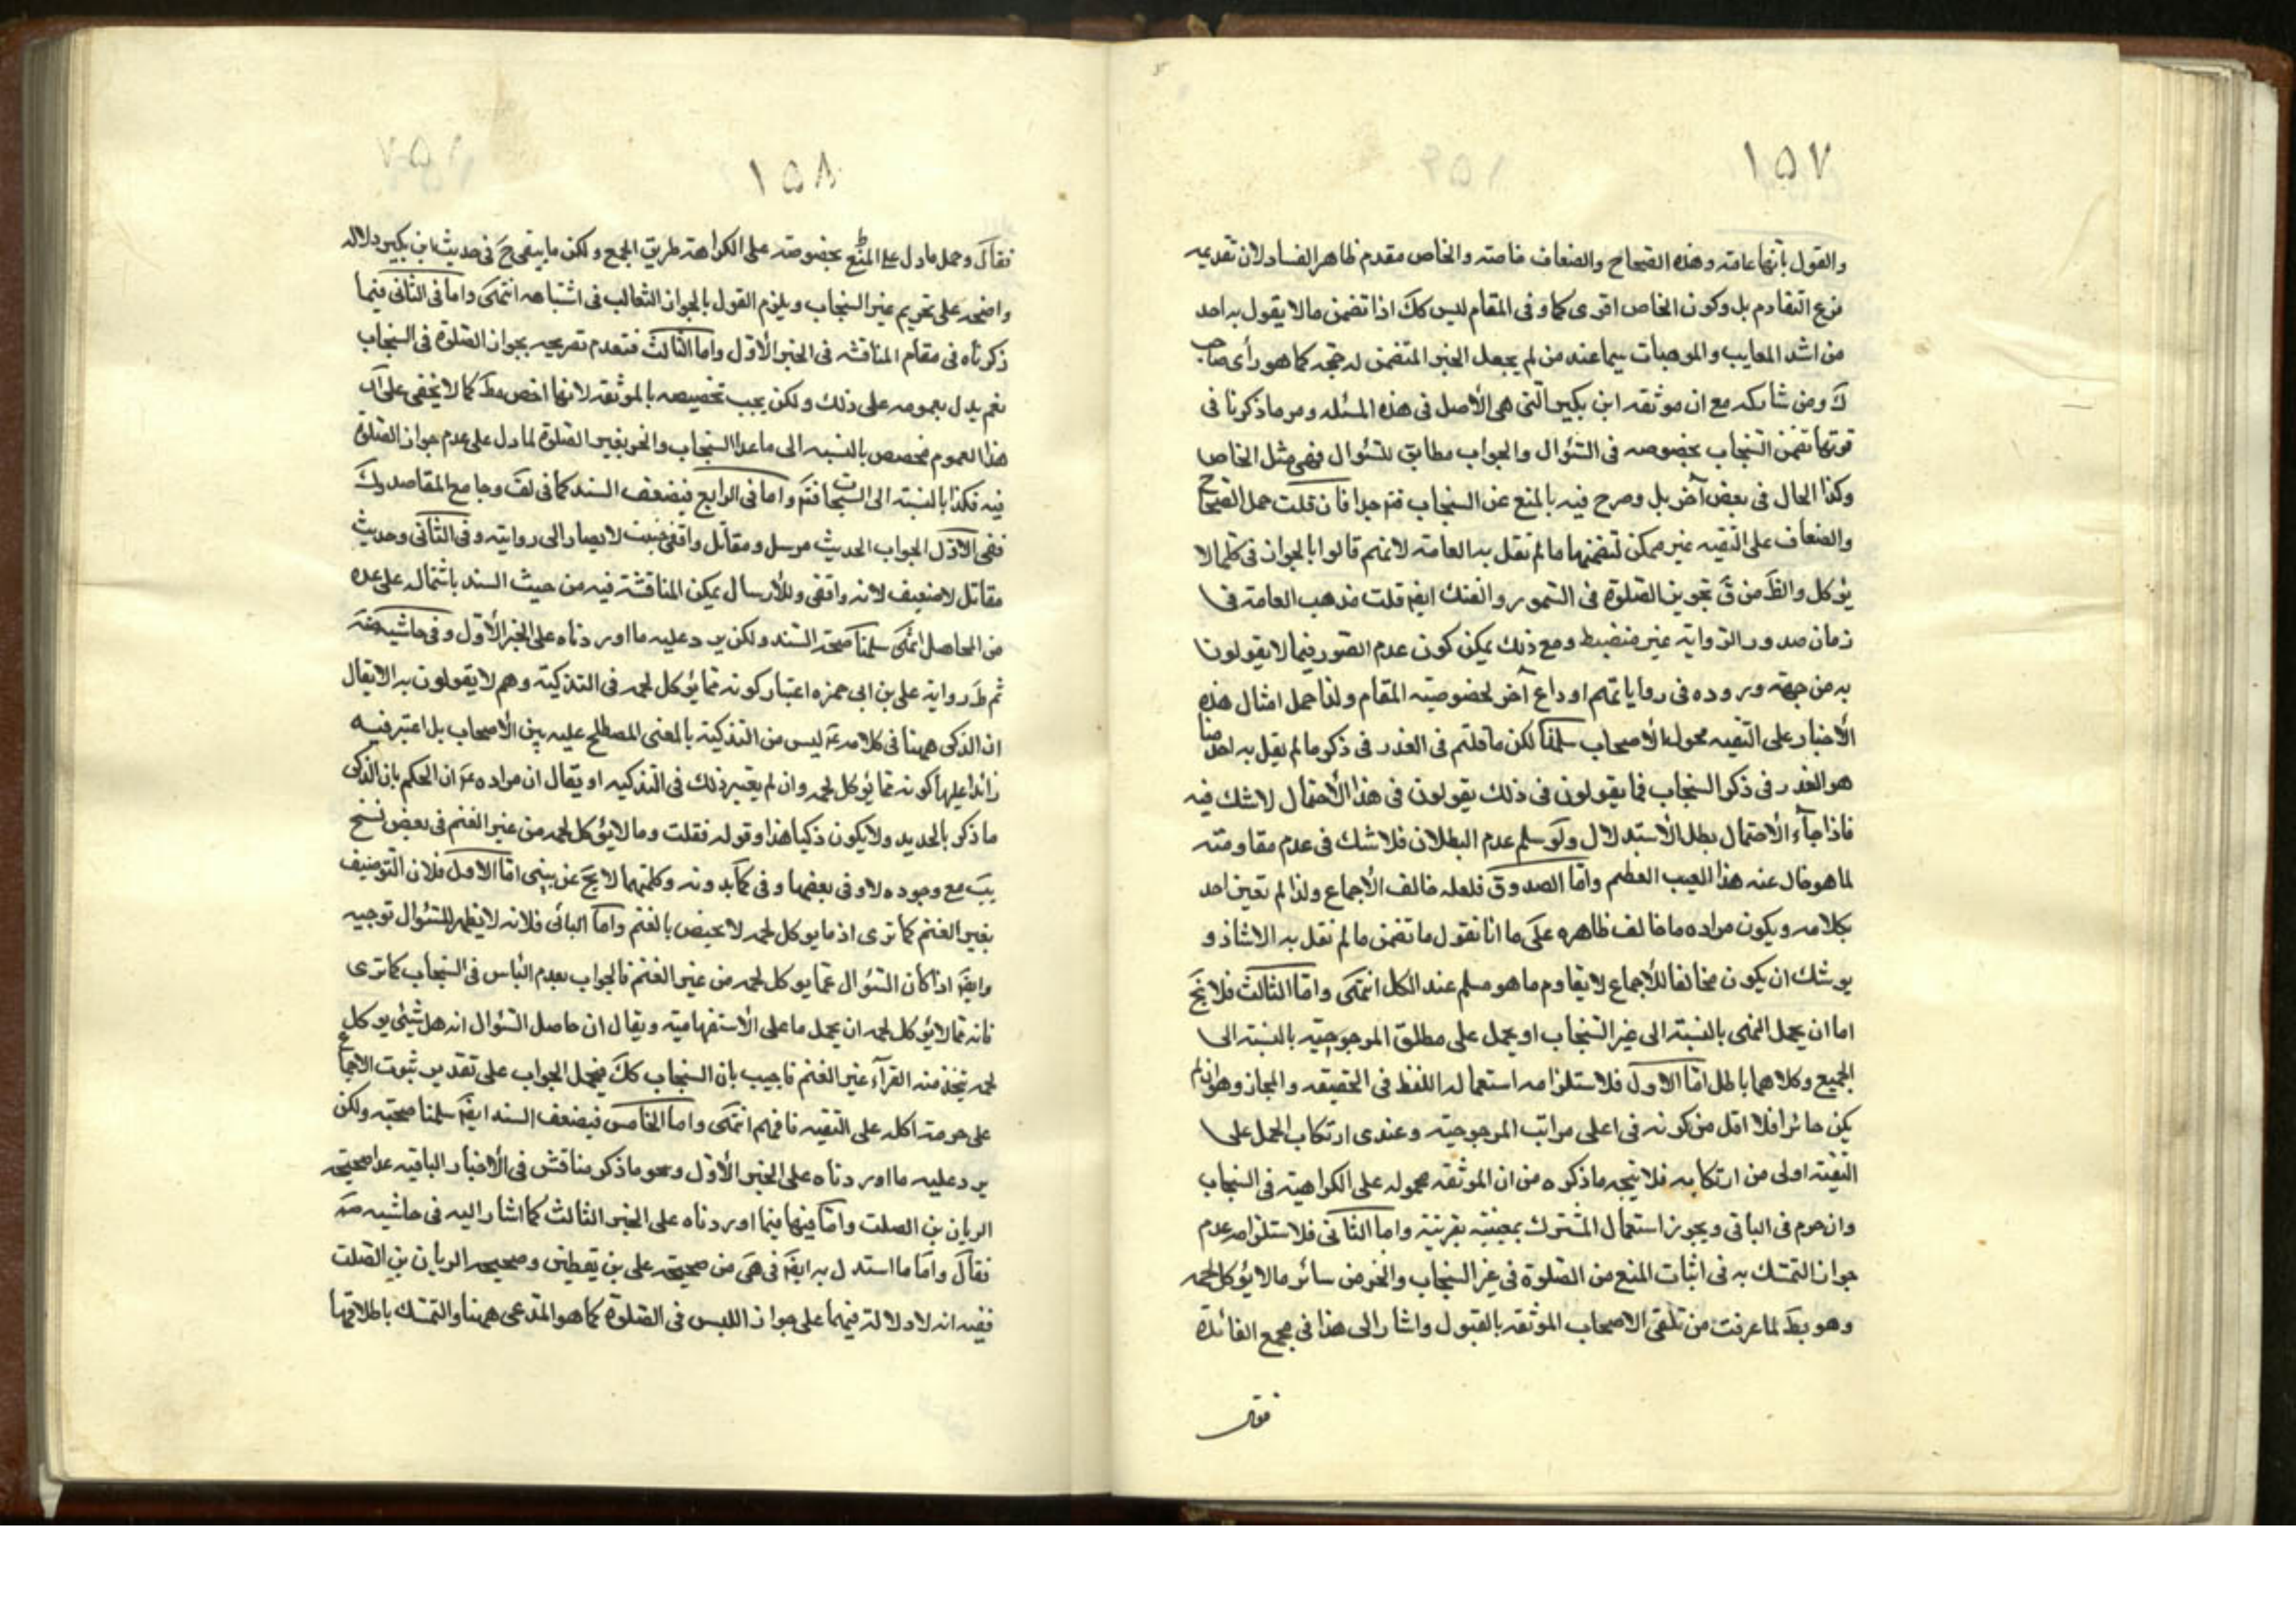 ١٥٧
والقول بأنها عامة وهذه الصحاح والضعاف خاصة والخاص مقدم ظاهر الفساد لان تقديمه
فرع التقادم بل وكون الخاص اقوى كما وفى المقام ليس كك اذا تضمن ما لا يقول به احد
من اشد المعايب والموهنات سيما عند من لم يجعل الخبر المتضمن له حجة كما هو رأى صاحب
ك ومن شاركه مع ان موثقه ابن بكير التى هى الأصل فى هذه المسئله ومر ما ذكرنا فى
قوتها تضمن السنجاب بخصوصه فى السؤال والجواب مطابق للسؤال فهى مثل الخاص
وكذا الحال فى بعض آخر بل وصرح فيه بالمنع عن السنجاب فتم جدا فان قلت حمل الصحاح
والضعاف على التقيه غير ممكن لتضمنها ما لم تقل به العامة لانهم قالوا بالجواز فى كلما لا
يؤكل والظ من ق تجويز الصلوة فى السمور والفنك ايضا قلت مذهب العامة فى
زمان صدور الرواية غير منضبط ومع ذلك يمكن كون عدم الصور فيما لا يقولون
به من جهة وروده فى رواياتهم او داع آخر لخصوصيه المقام ولذا حمل امثال هذه
الأخبار على التقيه فحول الأصحاب سلمنا لكن ما قلتم فى العذر فى ذكر ما لم يقل به احد منا
هو العذر فى ذكر السنجاب فما يقولون فى ذلك يقولون فى هذا الأحتمال لا شك فيه
فاذا جآء الأحتمال بطل الأستدلال ولو سلم عدم البطلان فلا شك فى عدم مقاومته
لما هو خال عنه هذا العيب العظيم واما الصدوق فلعله خالف الأجماع ولذا لم تعين احد
بكلامه ويكون مراده ما خالف ظاهره على ما انا نقول ما تضمن ما لم نقل به الا شاذ و
يوشك ان يكون مخالفا للأجماع لا يقاوم ما هو مسلم عند الكل انتهى واما الثالث فلا يخ
اما ان يحمل النهى بالنسبة الى غير السنجاب او يحمل على مطلق المرجوحيه بالنسبة الى
الجميع وكلاهما باطل اما الاول فلا ستلزامه استعماله اللفظ فى الحقيقه والمجاز وهو ان لم
يكن جائزا فلا اقل من كونه فى اعلى مراتب المرجوحيه وعندى ارتكاب الحمل على
التقية اولى من ارتكابه فلا يتجه ما ذكره من ان الموثقه محموله على الكراهية فى السنجاب
وان حرم فى الباقى ويجوز استعمال المشترك بمعنييه بقرينة واما الثانى فلا ستلزامه عدم
جواز التمسك به فى اثبات المنع من الصلوة فى غير السنجاب والخز من سائر ما لا يؤكل لحمه
وهو بط لما عرفت من تلقى الاصحاب الموثقه بالقبول واشار الى هذا فى مجمع الفائدة
فقال
١٥٨
فقال وحمل ما دل على المنع بخصوصه على الكراهة طريق الجمع ولكن ما يبقى ح فى حديث ابن بكير دلاله
واضحه على تحريم غير السنجاب ويلزم القول بالجواز الثعالب فى اشتباهه انتهى واما فى الثانى فيما
ذكرناه فى مقام المناقشه فى الخبر الأول واما الثالث فتعدم تصريحه بجواز الصلوة فى السنجاب
نعم يدل بعمومه على ذلك ولكن يجب تخصيصه بالموثقه لانها اخص مط كما لا يخفى على ان
هذا العموم مخصص بالنسبه الى ما عدا السنجاب والخز بغير الصلوة لما دل على عدم جواز الصلوة
فيه فكذا بالنسبة الى السنجاب فتم واما فى الرابع فبضعف السند كما فى لف وجامع المقاصد وك
ففى الاول الجواب الحديث مرسل ومقاتل واقفى خبيث لا يصار الى روايته وفى الثانى وحديث
مقاتل لا ضعيف لانه واقفى وللأرسال يمكن المناقشة فيه من حيث السند باشتماله على عدة
من المجاهيل انتهى سلمنا صحة السند ولكن يرد عليه ما اوردناه على الخبر الأول وفى حاشيه
ثم ظ رواية على بن ابى حمزه اعتبار كونه مما يؤكل لحمه فى التذكية وهم لا يقولون به الا يقال
ان الذكى ههنا فى كلامه ع ليس من التذكية بالمعنى المصطلح عليه بين الأصحاب بل اعتبر فيه
زائدا عليها كونه مما يؤكل لحمه وان لم يعتبر ذلك فى التذكيه او يقال ان مراده ع ان الحكم بان الذكى
ما ذكر بالحديد ولا يكون ذكيا هذا وقوله فقلت وما لا يؤكل لحمه من غير الغنم فى بعض نسخ
يب مع وجوده لا وفى بعضها وفى كما بدونه وكلتيهما لا يخ عن شىء اما الاول فلان التوصيف
بغير الغنم كما ترى اذ ما يوكل لحمه لا يختص بالغنم واما الثانى فلانه لا يظهر للسئوال توجيه
وايضا اذا كان السؤال عما يوكل لحمه من غير الغنم فالجواب بعدم الباس فى السنجاب كما ترى
فانه مما لا يؤكل لحمه ان يحمل ما على الأستفهامية ويقال ان حاصل السئوال انه هل شىء يوكل
لحمه يتخذ منه الفرآء غير الغنم فاجيب بان السنجاب كك فيحمل الجواب على تقدير ثبوت الاجماع
على حرمة اكله على التقيه فافهم انتهى واما الخامس فبضعف السند ايضا سلمنا صحته ولكن
يرد عليه ما اوردناه على الخبر الأول ونحو ما ذكر مناقش فى الأخبار الباقيه عدا صحيحة
الريان بن الصلت واما فيها فيما اوردناه على الخبر الثالث كما اشار اليه فى حاشيه
فقال واما ما استدل به ايضا فى هى من صحيحة على بن يقطين وصحيحه الريان بن الصلت
ففيه انه لا دلالة فيهما على جواز اللبس فى الصلوة كما هو المدعى ههنا والتمسك باطلاقها